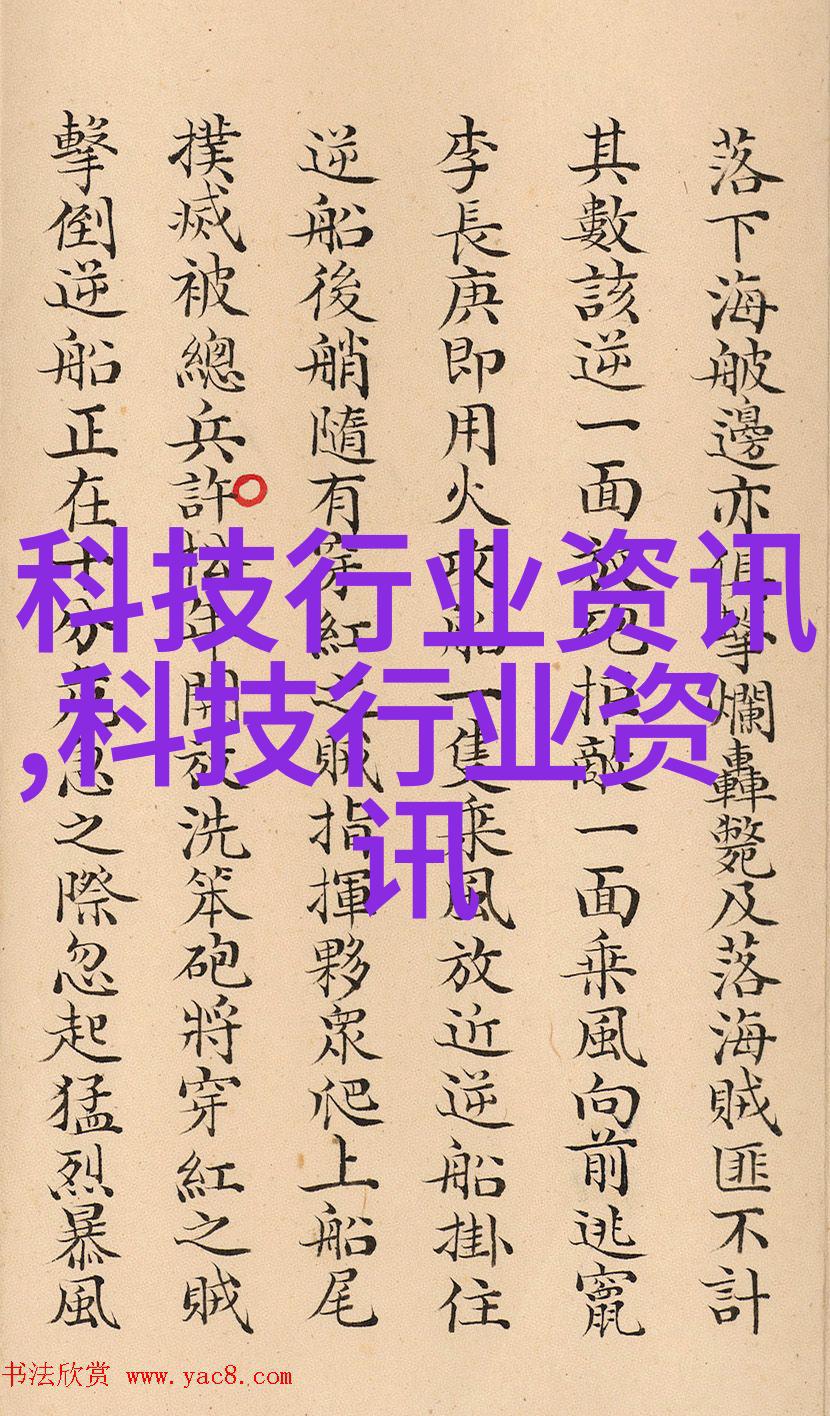 落下海船邊亦俱擊爛轟斃及落海賊匪不計
其數該逆一面放砲拒敵一面乗風向前逃竄
李長庚即用火攻船一隻乗風放近逆船掛住
逆船後艄隨有穿紅之賊指揮夥眾爬上船尾
撲滅被總兵許松年開放洗笨砲將穿紅之賊
擊倒逆船正在十分危急之際忽起猛烈暴風
科技行业资讯
,科技行业资
讯
书法欣赏 www.yac8.com